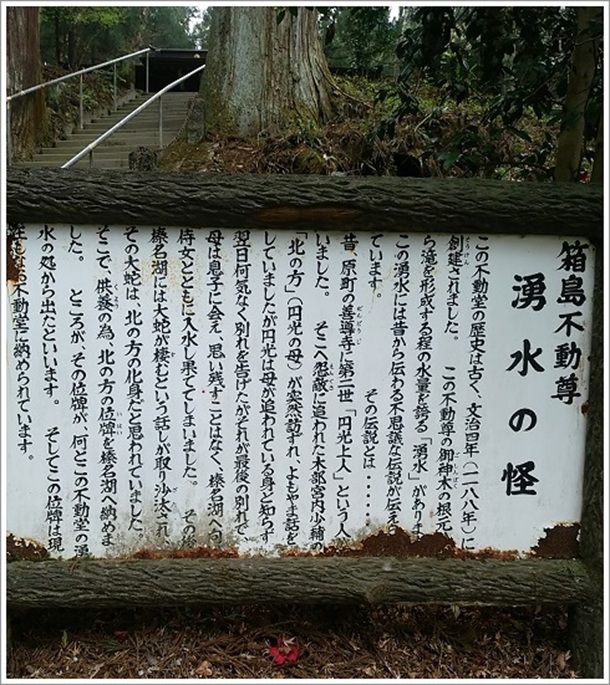 箱島不動尊
湧水の怪
この不動堂の歴史は古く、文治四年(一一八八年)に
創建されました。 この不動尊の御神木の根元
ら滝を形成する程の水量を誇る「湧水」があります
この湧水には昔から伝わる不思議な伝説が伝え
ています。 その伝説とは・・・・・
昔、原町の善導寺に第二世「円光上人」という人
いました。 そこへ怨敵に追われた木部宮内少輔の
「北の方」(円光の母)が突然訪ずれ、よもやま話を
していましたが円光は母が追われている身と知らず
翌日何気なく別れを告げたがそれが最後の別れで、
母は息子に会え、思い残すことはなく、榛名湖へ向
侍女とともに入水し果ててしまいました。 その後
榛名湖には大蛇が棲むという話しが取り沙汰され、
その大蛇は、北の方の化身だと思われていました
そこで、供養の為、北の方の位牌を榛名湖へ納めま
した。 ところが、その位牌が、何とこの不動堂の湧
水の処から出たといいます。 そしてこの位牌は現
在もなお不動堂に納められています。